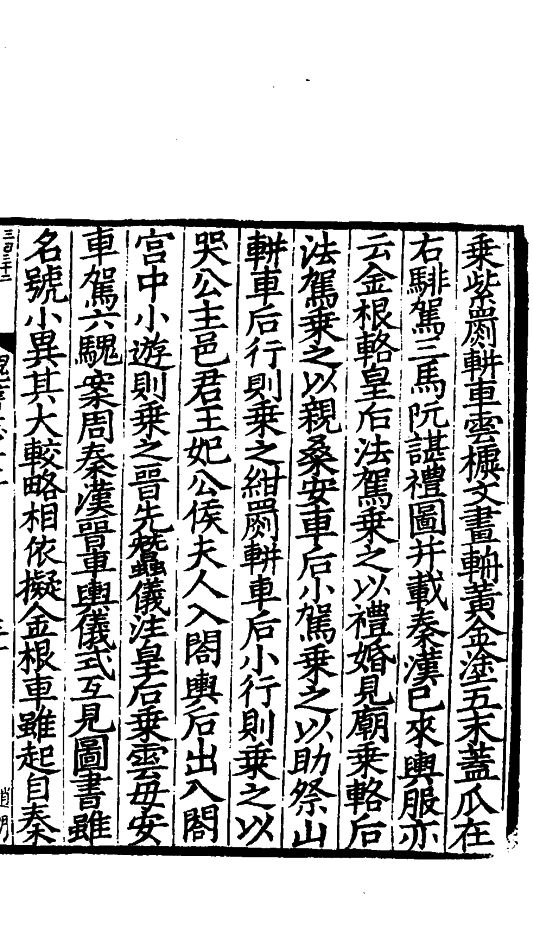 乗紫罽軿車雲𣝛文畫輈黃金塗五末蓋爪在
右騑駕三馬阮諶禮圖并載秦漢已來輿服亦
云金根輅皇后法駕乗之以禮婚見廟乗輅后
法駕乗之以親桑安車后小駕乗之以助祭山
軿車后行則乗之紺罽軿車后小行則乗之以
哭公主邑君王妃公侯夫人入閤輿后出入閤
宫中小遊則乗之晉先蠶儀注皇后乗雲母安
車駕六騩案周秦漢晉車輿儀式互見圖書雖
名號小異其大較略相依擬金根車雖起自秦
三百三十二